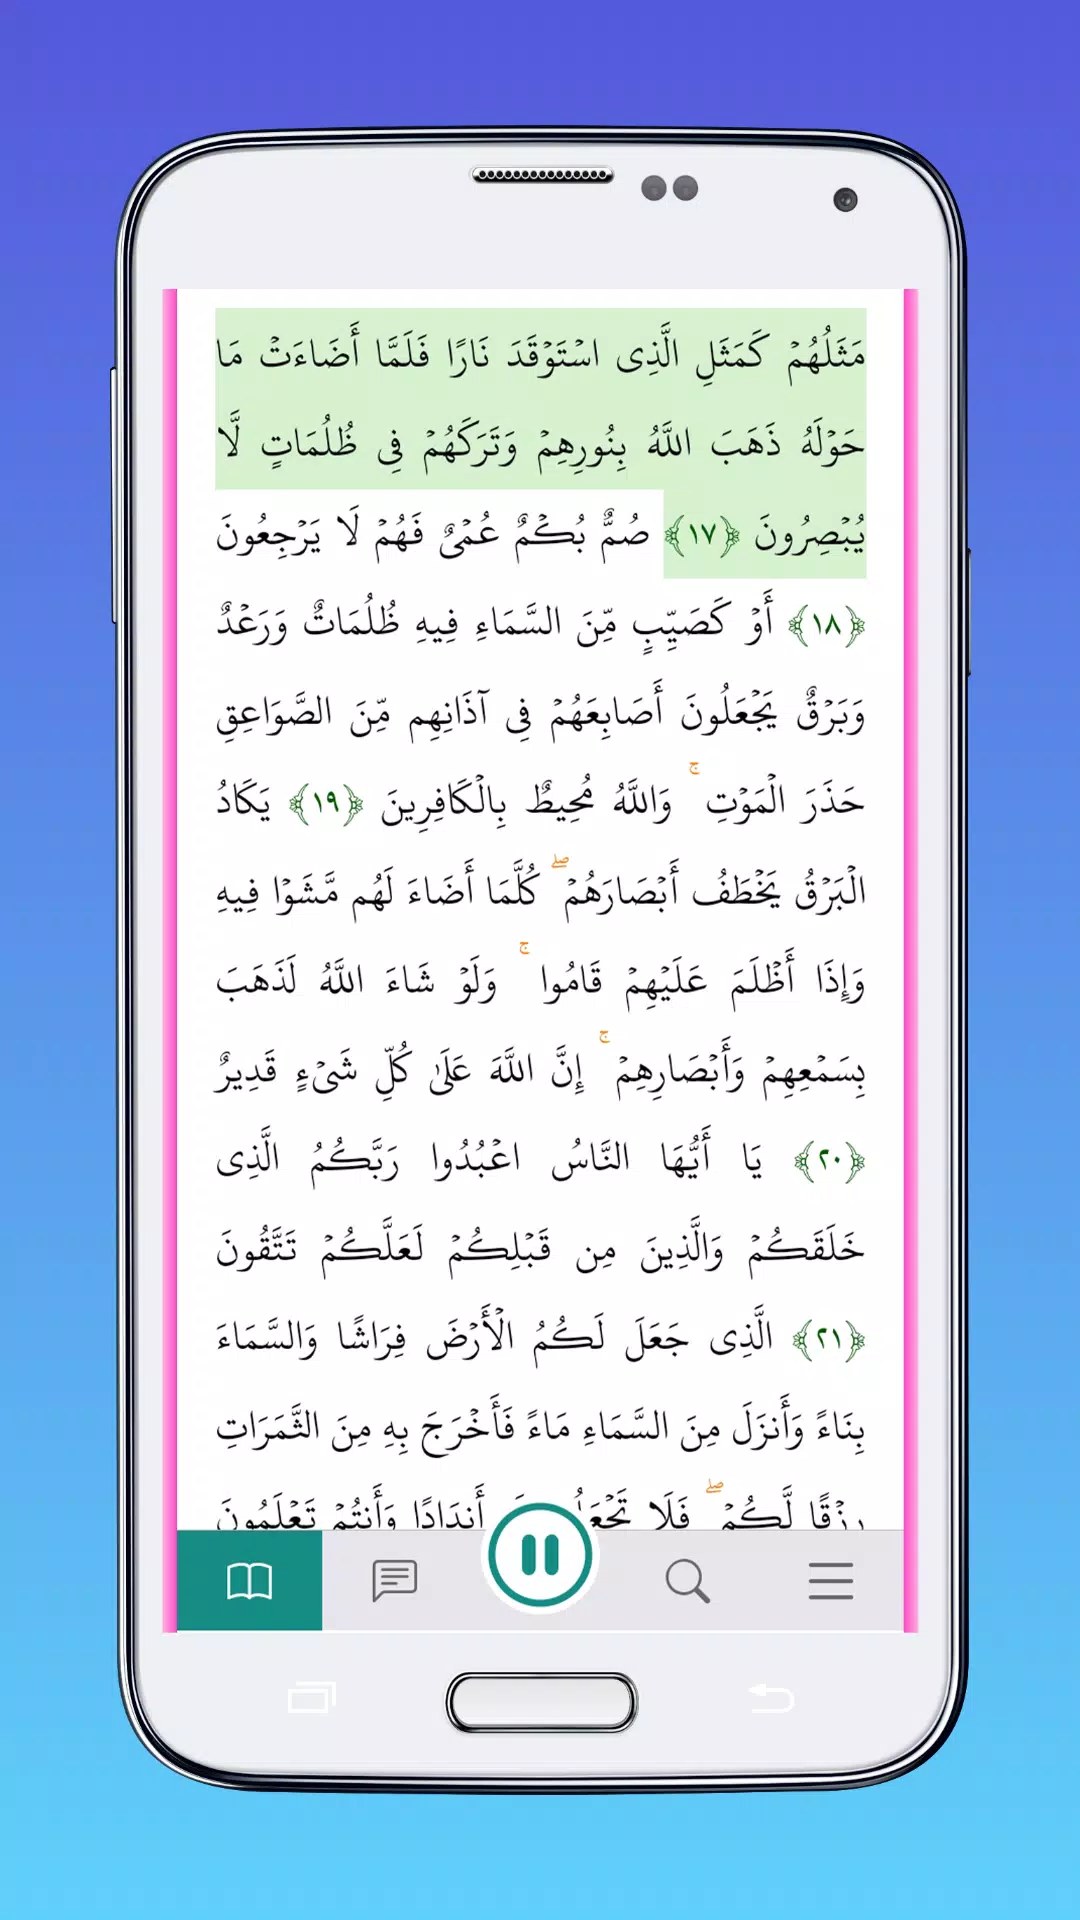 مَثَلُهُمْ كَمَثَلِ الَّذِى اسْتَوْقَدَ نَارًا فَلَمَّا أَضَاءَتْ مَا
حَوْلَهُ ذَهَبَ اللَّهُ بِنُورِهِمْ وَتَرَكَهُمْ فِى ظُلُمَاتٍ لَّا
يُبْصِرُونَ ﴿١٧﴾ صُمٌّ بُكْمٌ عُمْىٌ فَهُمْ لَا يَرْجِعُونَ
﴿١٨﴾ أَوْ كَصَيِّبٍ مِّنَ السَّمَاءِ فِيهِ ظُلُمَاتٌ وَرَعْدٌ
وَبَرْقٌ يَجْعَلُونَ أَصَابِعَهُمْ فِى آذَانِهِم مِّنَ الصَّوَاعِقِ
حَذَرَ الْمَوْتِ ۚ وَاللَّهُ مُحِيطٌ بِالْكَافِرِينَ ﴿١٩﴾ يَكَادُ
الْبَرْقُ يَخْطَفُ أَبْصَارَهُمْ ۖ كُلَّمَا أَضَاءَ لَهُم مَّشَوْا فِيهِ
وَإِذَا أَظْلَمَ عَلَيْهِمْ قَامُوا ۚ وَلَوْ شَاءَ اللَّهُ لَذَهَبَ
بِسَمْعِهِمْ وَأَبْصَارِهِمْ ۚ إِنَّ اللَّهَ عَلَىٰ كُلِّ شَىْءٍ قَدِيرٌ
﴿٢٠﴾ يَا أَيُّهَا النَّاسُ اعْبُدُوا رَبَّكُمُ الَّذِى
خَلَقَكُمْ وَالَّذِينَ مِن قَبْلِكُمْ لَعَلَّكُمْ تَتَّقُونَ
﴿٢١﴾ الَّذِى جَعَلَ لَكُمُ الْأَرْضَ فِرَاشًا وَالسَّمَاءَ
بِنَاءً وَأَنزَلَ مِنَ السَّمَاءِ مَاءً فَأَخْرَجَ بِهِ مِنَ الثَّمَرَاتِ
رِزْقًا لَّكُمْ ۖ فَلَا أَندَادًا وَأَنتُمْ تَعْلَمُونَ